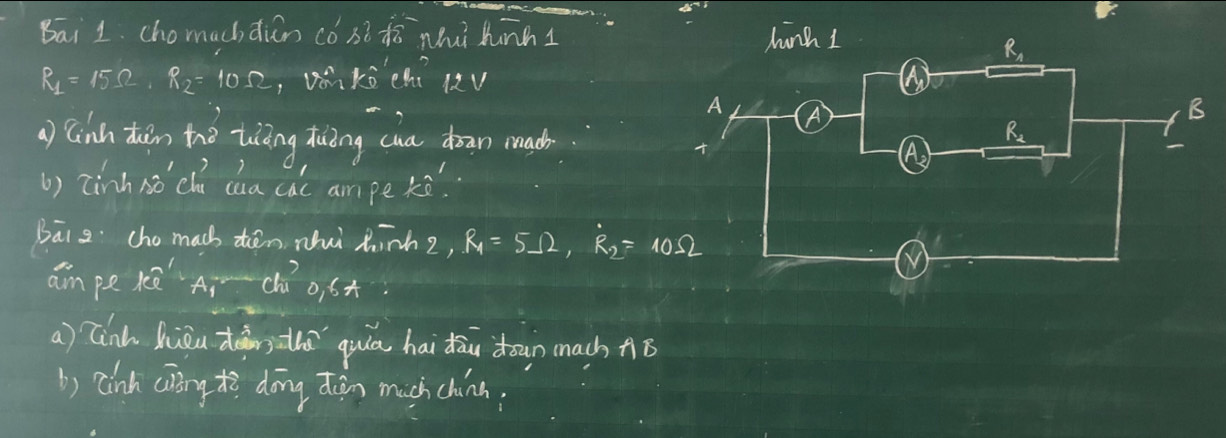 Bài 1. Cho mạch điện có sơ đồ như hình 1
R₁ = 15Ω, R₂ = 10Ω, vôn kế chỉ 12V
a) Tính điện trở tương đương của đoạn mạch.
b) Tính số chỉ của các ampe kế.
Bài 2: Cho mạch điện như hình 2, R₁ = 5Ω, R₂ = 10Ω
ampe kế A₁ chỉ 0,6A.
a) Tính hiệu điện thế giữa hai đầu đoạn mạch AB
b) Tính cường độ dòng điện mạch chính.
hình 1
A
+
A
A₁
R₁
A₂
R₂
V
B
-